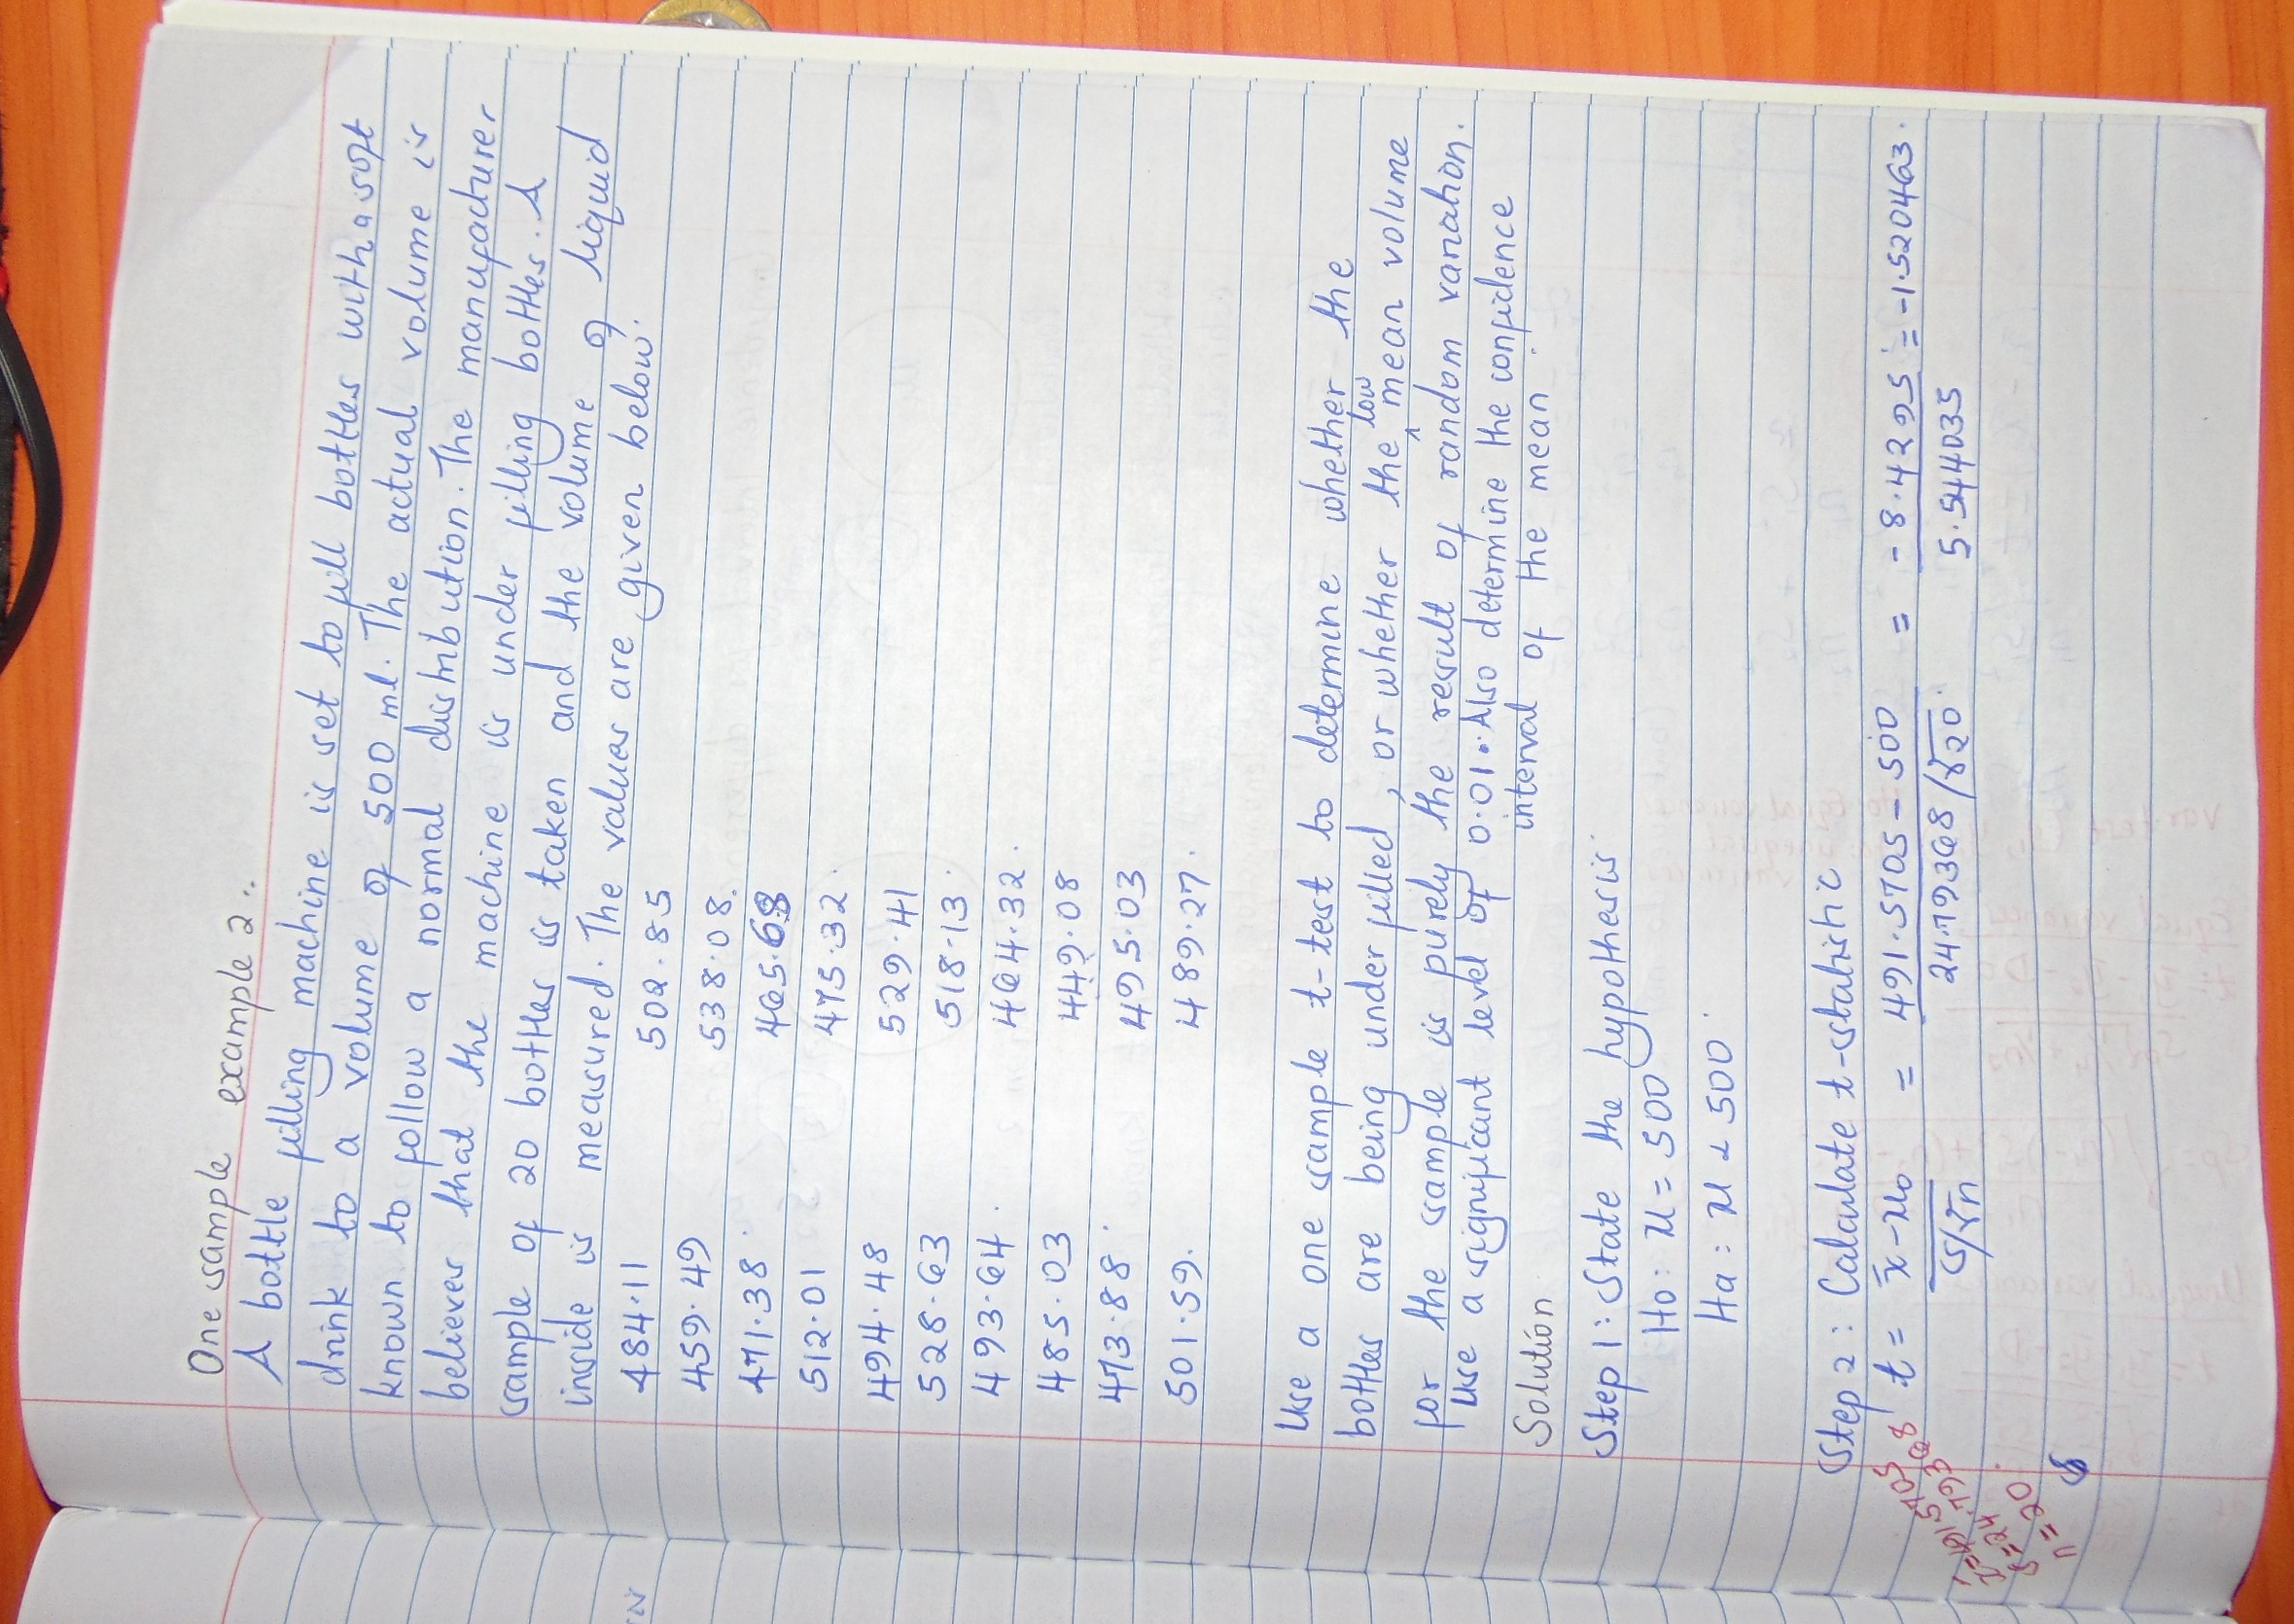 One sample example 2..
A bottle filling machine is set to fill bottles with a soft
drink to a volume of 500 ml. The actual volume is
known to follow a normal distribution. The manufacturer
believes that the machine is under filling bottles. A
sample of 20 bottles is taken and the volume of liquid
inside is measured. The values are given below.
484.11 502.85
459.49 538.08.
471.38 465.68
512.01 475.32
494.48 529.41
528.63 518.13
493.64 464.32
485.03 449.08
473.88 495.03
501.59. 489.27.
Use a one sample t-test to determine whether the
bottles are being under filled, or whether the low mean volume
for the sample is purely the result of random variation.
Use a significant level of 0.01. Also determine the confidence
interval of the mean
Solution
Step 1: State the hypothesis
Ho: μ = 500
Ha: μ < 500
Step 2: Calculate t-statistic
t = x̄-μ₀ / s/√n = 491.5705 - 500 / 24.79368/√20 = -8.4295 / 5.544035 = -1.520463.
x̄=491.5705
s=24.79368
n=20